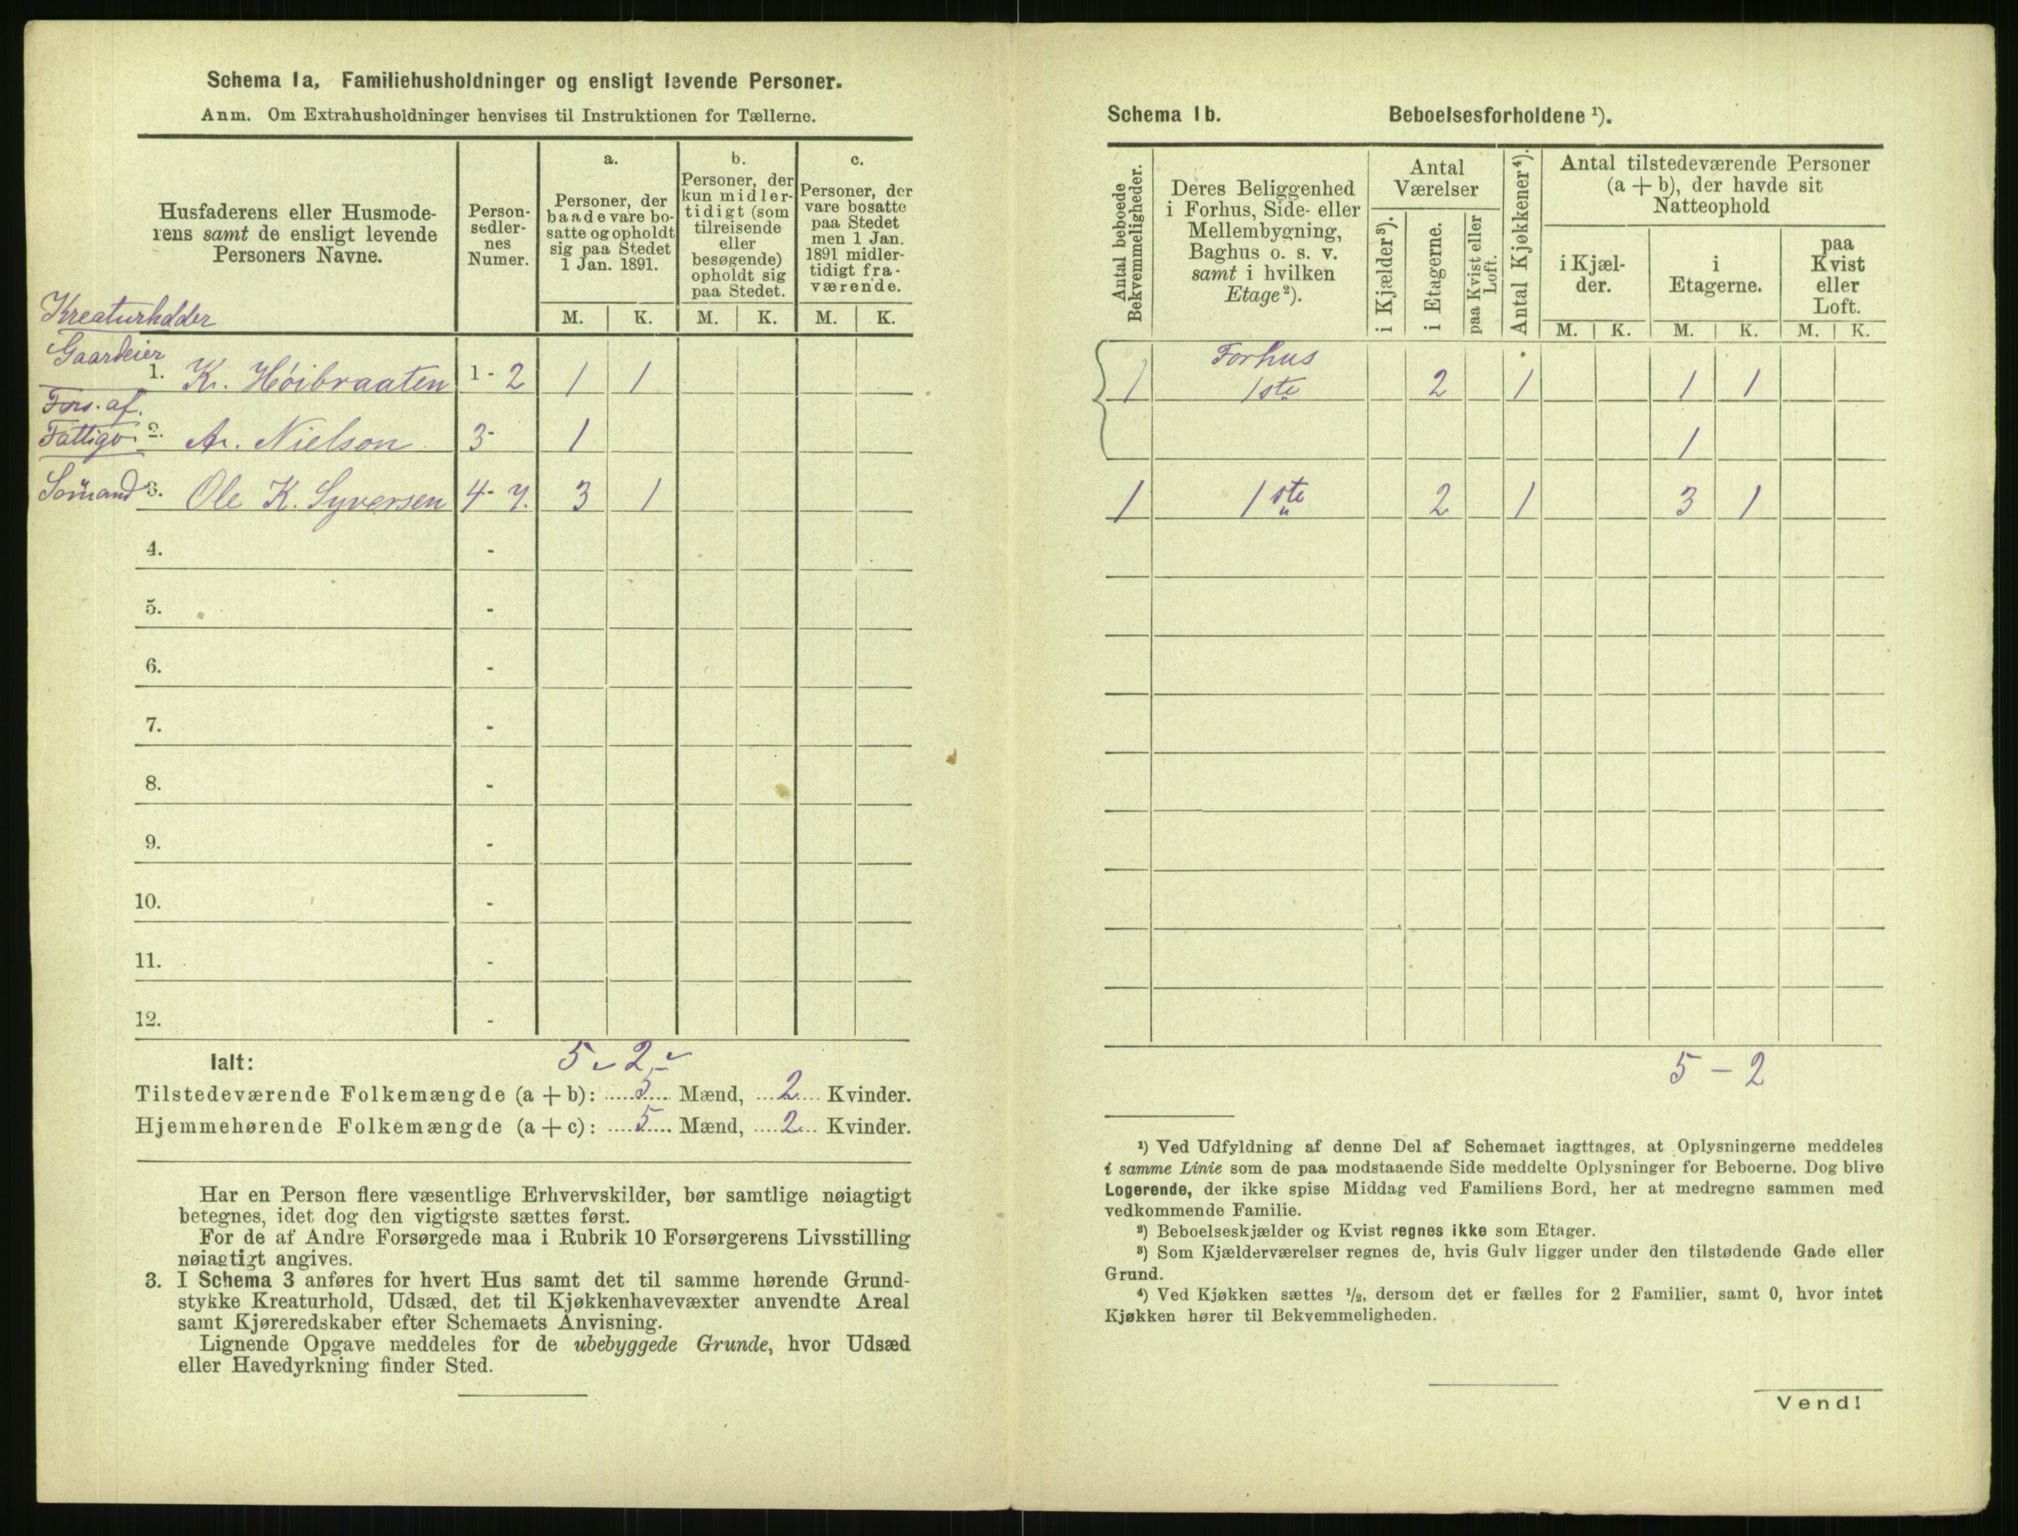 Schema 1a, Familiehusholdninger og ensligt levende Personer.
Anm. Om Extrahusholdninger henvises til Instruktionen for Tællerne.
Husfaderens eller Husmoderens samt de ensligt levende Personers Navne.
Personsedlernes Numer.
a. Personer, der baade vare bosatte og opholdt sig paa Stedet 1 Jan. 1891.
b. Personer, der kun midlertidigt (som tilreisende eller besøgende) opholdt sig paa Stedet.
c. Personer, der vare bosatte paa Stedet men 1 Jan. 1891 midlertidigt fraværende.
M. K. M. K. M. K.
Kreaturholder
Gaardeier
1. K. Höibraaten 1-2 1 1
Fors. af.
Fattigv. 2. A. Nielson 3- 1
Sömand 3. Ole K. Syversen 4-7. 3 1
4. -
5. -
6. -
7. -
8. -
9. -
10. -
11. -
12. -
Ialt: 5 - 2 -
Tilstedeværende Folkemængde (a + b): 5 Mænd, 2 Kvinder.
Hjemmehørende Folkemængde (a + c): 5 Mænd, 2 Kvinder.
Har en Person flere væsentlige Erhvervskilder, bør samtlige nøiagtigt
betegnes, idet dog den vigtigste sættes først.
For de af Andre Forsørgede maa i Rubrik 10 Forsørgerens Livsstilling
nøiagtigt angives.
3. I Schema 3 anføres for hvert Hus samt det til samme hørende Grund-
stykke Kreaturhold, Udsæd, det til Kjøkkenhavevæxter anvendte Areal
samt Kjøreredskaber efter Schemaets Anvisning.
Lignende Opgave meddeles for de ubebyggede Grunde, hvor Udsæd
eller Havedyrkning finder Sted.
Schema 1b. Beboelsesforholdene ¹).
Antal beboede Bekvemmeligheder.
Deres Beliggenhed i Forhus, Side- eller Mellembygning, Baghus o. s. v. samt i hvilken Etage²).
Antal Værelser
i Kjælder³).
i Etagerne.
paa Kvist eller Loft.
Antal Kjøkkener⁴).
Antal tilstedeværende Personer
(a + b), der havde sit
Natteophold
i Kjælder.
i Etagerne.
paa Kvist eller Loft.
M. K. M. K. M. K.
Forhus
1 1ste 2 1 1 1
1
1 1ste 2 1 3 1
5 - 2
¹) Ved Udfyldning af denne Del af Schemaet iagttages, at Oplysningerne meddeles
i samme Linie som de paa modstaaende Side meddelte Oplysninger for Beboerne. Dog blive
Logerende, der ikke spise Middag ved Familiens Bord, her at medregne sammen med
vedkommende Familie.
²) Beboelseskjælder og Kvist regnes ikke som Etager.
³) Som Kjælderværelser regnes de, hvis Gulv ligger under den tilstødende Gade eller
Grund.
⁴) Ved Kjøkken sættes ½, dersom det er fælles for 2 Familier, samt 0, hvor intet
Kjøkken hører til Bekvemmeligheden.
Vend!